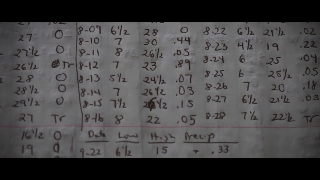 27 0 8-09 6½ 28 0 8-22 6½ 21½ .02
27½ 0 8-10 7 30 .44 8-23 4½ 19 .22
26½ Tr 8-11 8 26½ .05 8-24 6 25 .04
28 0 8-12 7 23 .89 8-25 6 25½ .05
28½ 0 8-13 5½ 24½ .07 8-26 7 20 .18
29½ 0 8-14 7 26½ .03 8-27 6½ 21½ .03
27 Tr 8-15 7½ .15 8-28 7½ 22½ Tr
8-16 8 22 .05
16½ 0 Date Low High Precip
19 0 9-22 6½ 15 .33